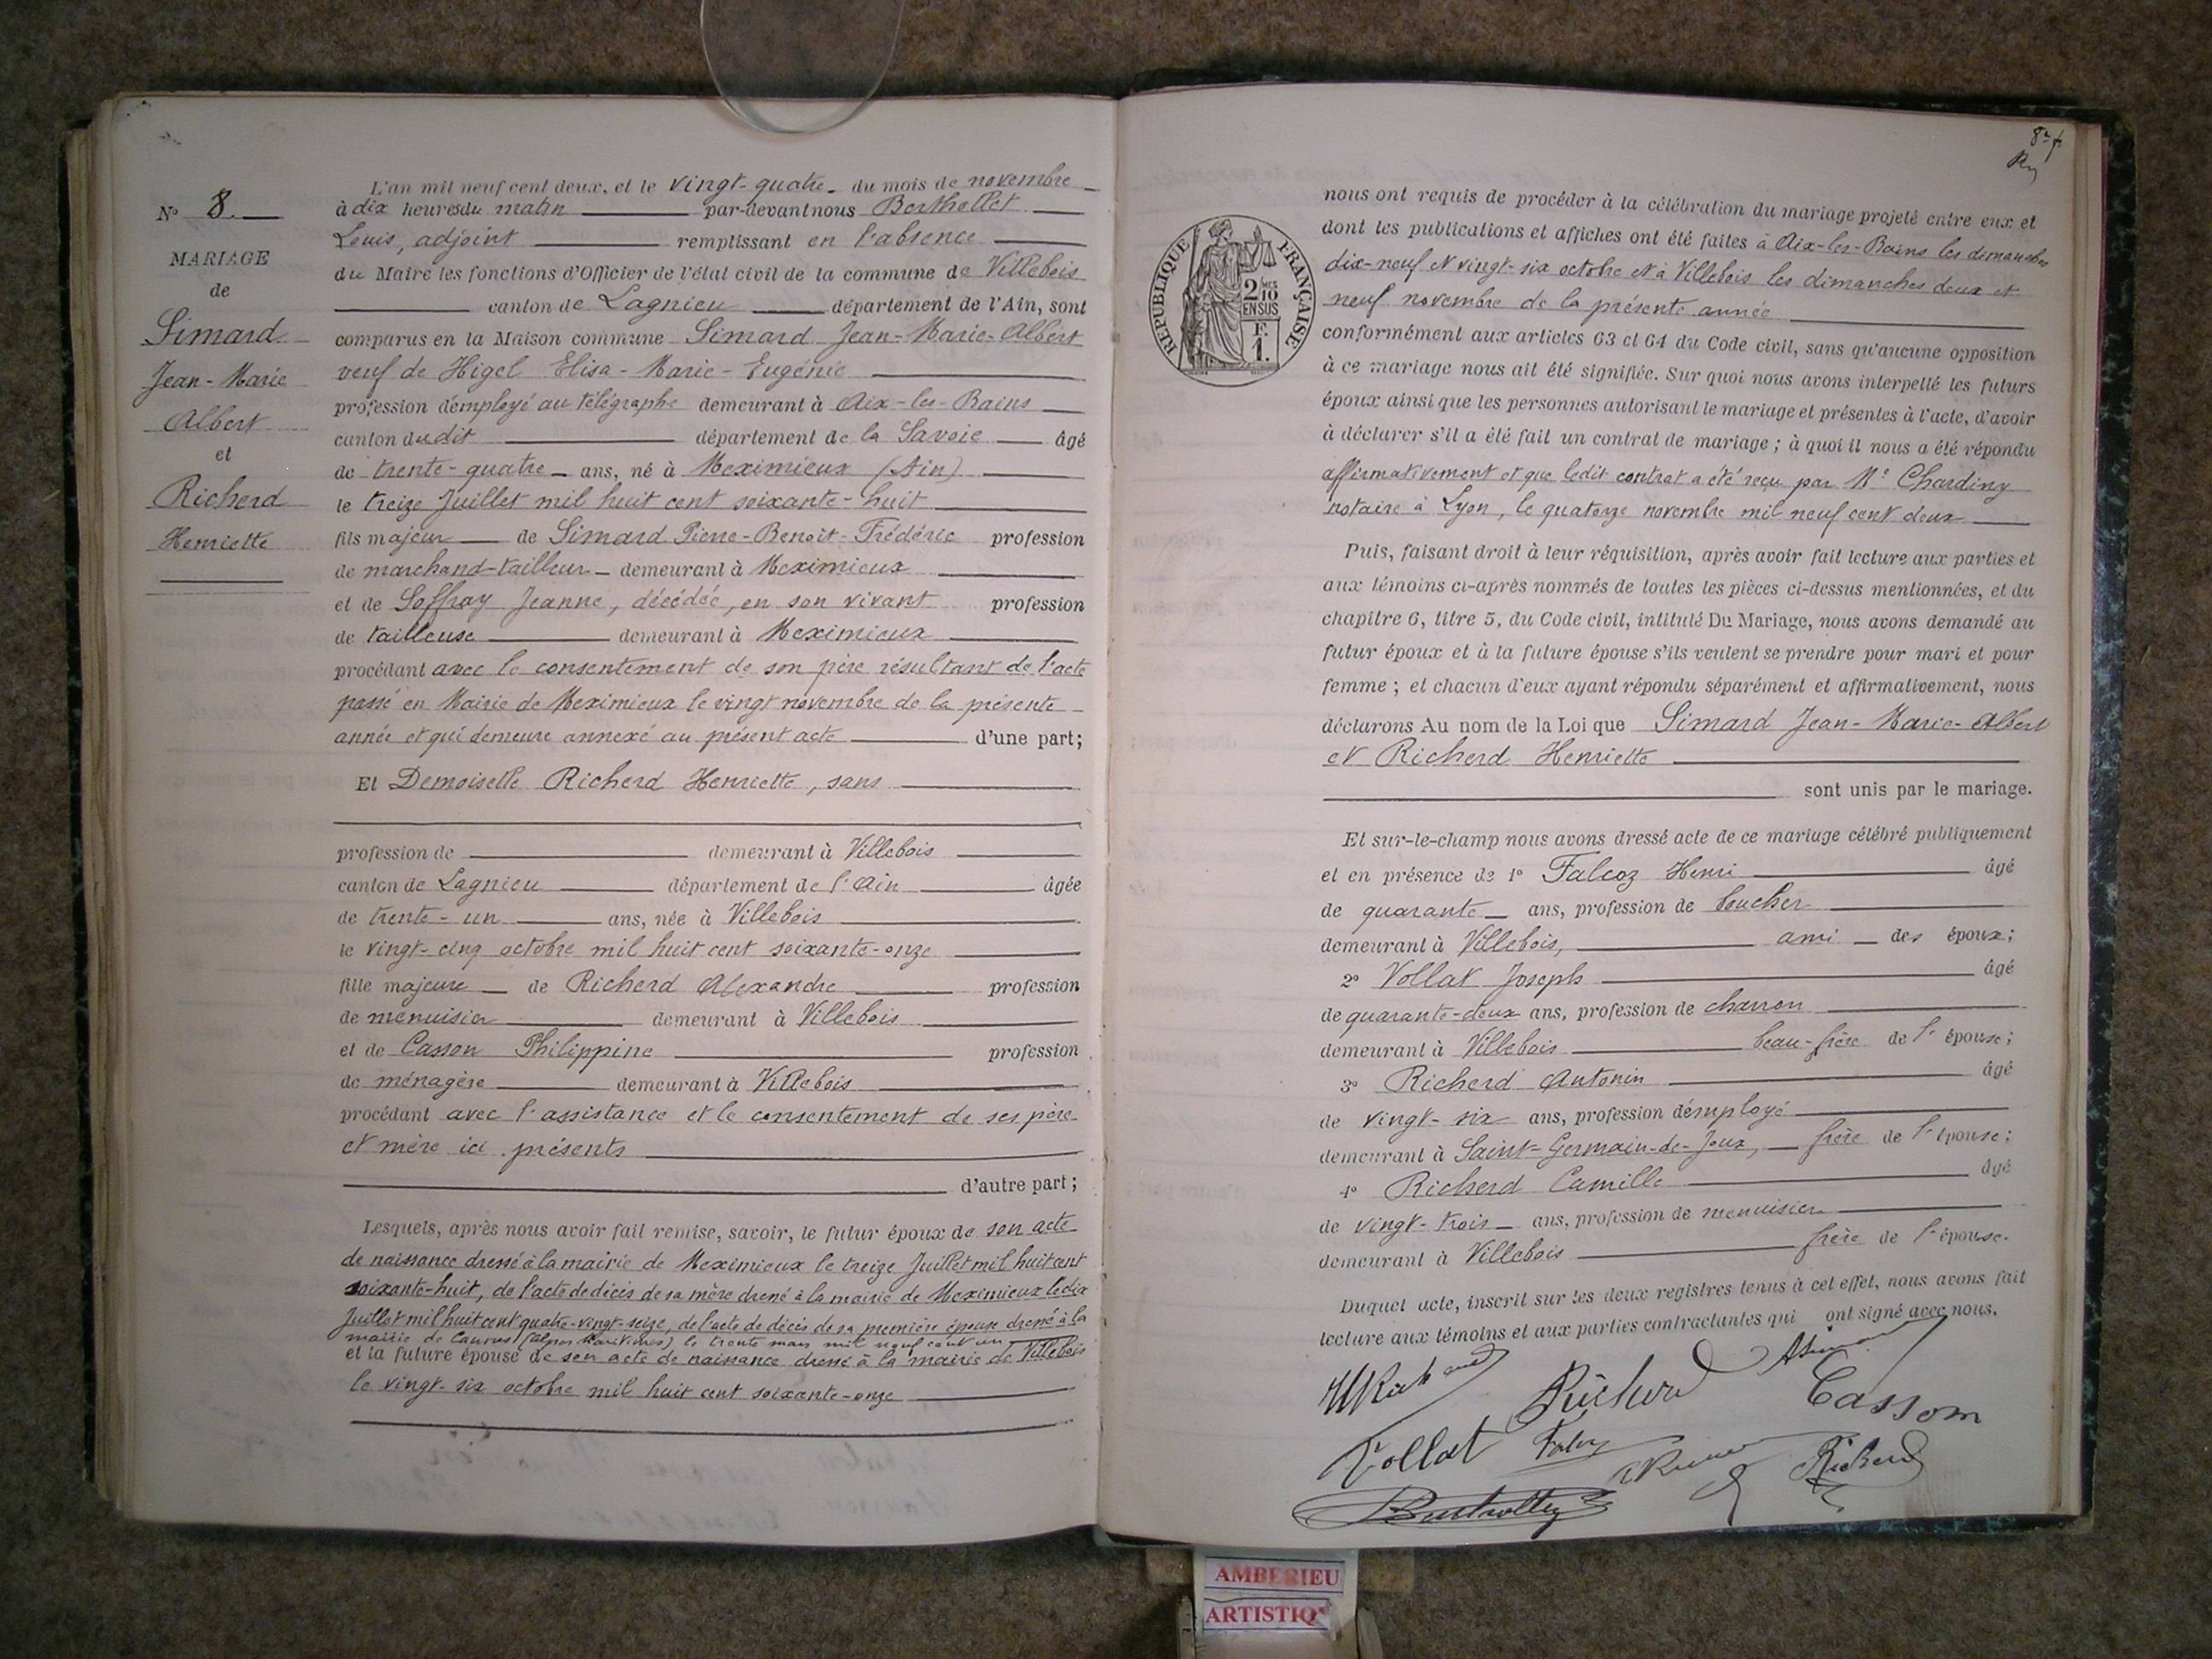 N° 8.
MARIAGE
de
Simard
Jean-Marie
Albert
et
Richerd
Henriette
L'an mil neuf cent deux, et le vingt-quatre du mois de novembre
à dix heures du matin par-devant nous Berthollet
Louis, adjoint remplissant en l'absence
du Maire les fonctions d'Officier de l'état civil de la commune de Villebois
canton de Lagnieu département de l'Ain, sont
comparus en la Maison commune Simard Jean-Marie-Albert
veuf de Higel Elisa-Marie-Eugénie
profession d'employé au télégraphe demeurant à Aix-les-Bains
canton dudit département de la Savoie âgé
de trente-quatre ans, né à Meximieux (Ain)
le treize Juillet mil huit cent soixante-huit
fils majeur de Simard Pierre-Benoit-Frédéric profession
de marchand-tailleur demeurant à Meximieux
et de Soffray Jeanne, décédée, en son vivant profession
de tailleuse demeurant à Meximieux
procédant avec le consentement de son père résultant de l'acte
passé en Mairie de Meximieux le vingt novembre de la présente
année et qui demeure annexé au présent acte d'une part;
Et Demoiselle Richerd Henriette, sans
profession de demeurant à Villebois
canton de Lagnieu département de l'Ain âgée
de trente-un ans, née à Villebois
le vingt-cinq octobre mil huit cent soixante-onze
fille majeure de Richerd Alexandre profession
de menuisier demeurant à Villebois
et de Casson Philippine profession
de ménagère demeurant à Villebois
procédant avec l'assistance et le consentement de ses père
et mère ici présents
d'autre part;
Lesquels, après nous avoir fait remise, savoir, le futur époux de son acte
de naissance dressé à la mairie de Meximieux le treize Juillet mil huit cent
soixante-huit, de l'acte de décès de sa mère dressé à la mairie de Meximieux le dix
Juillet mil huit cent quatre-vingt-seize, de l'acte de décès de sa première épouse dressé à la
mairie de Cannes (Alpes Maritimes) le trente mars mil neuf cent un
et la future épouse de son acte de naissance dressé à la mairie de Villebois
le vingt-six octobre mil huit cent soixante-onze
nous ont requis de procéder à la célébration du mariage projeté entre eux et
dont les publications et affiches ont été faites à Aix-les-Bains les dimanches
dix-neuf et vingt-six octobre et à Villebois les dimanches deux et
neuf novembre de la présente année
conformément aux articles 63 et 64 du Code civil, sans qu'aucune opposition
à ce mariage nous ait été signifiée. Sur quoi nous avons interpellé les futurs
époux ainsi que les personnes autorisant le mariage et présentes à l'acte, d'avoir
à déclarer s'il a été fait un contrat de mariage; à quoi il nous a été répondu
affirmativement et que ledit contrat a été reçu par Me Chardiny
notaire à Lyon, le quatorze novembre mil neuf cent deux
Puis, faisant droit à leur réquisition, après avoir fait lecture aux parties et
aux témoins ci-après nommés de toutes les pièces ci-dessus mentionnées, et du
chapitre 6, titre 5, du Code civil, intitulé Du Mariage, nous avons demandé au
futur époux et à la future épouse s'ils veulent se prendre pour mari et pour
femme; et chacun d'eux ayant répondu séparément et affirmativement, nous
déclarons Au nom de la Loi que Simard Jean-Marie-Albert
et Richerd Henriette
sont unis par le mariage.
Et sur-le-champ nous avons dressé acte de ce mariage célébré publiquement
et en présence de 1° Falcoz Henri âgé
de quarante ans, profession de boucher
demeurant à Villebois, ami des époux;
2° Vollat Joseph âgé
de quarante-deux ans, profession de charron
demeurant à Villebois beau-frère de l'épouse;
3° Richerd Antonin âgé
de vingt-six ans, profession d'employé
demeurant à Saint-Germain-de-Joux, frère de l'épouse;
4° Richerd Camille âgé
de vingt-trois ans, profession de menuisier
demeurant à Villebois frère de l'épouse.
Duquel acte, inscrit sur les deux registres tenus à cet effet, nous avons fait
lecture aux témoins et aux parties contractantes qui ont signé avec nous.
Richerd Cassom
Vollat Richerd
RÉPUBLIQUE FRANÇAISE
2/10MES
EN SUS
F.
1.
AMBERIEU
ARTISTIQ